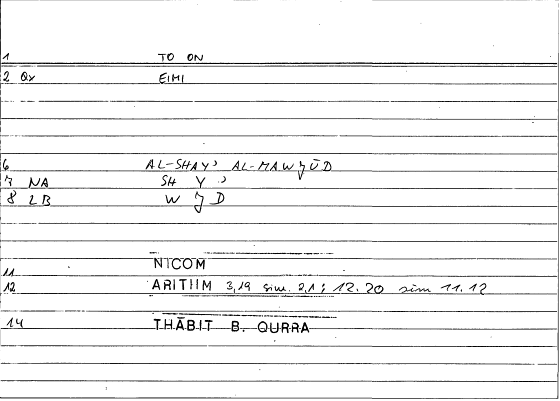 1 TO ON
2 Qx EIMI
6 AL-SHAYʾ AL-MAWJŪD
7 NA SH Y ʾ
8 LB W J D
11 NICOM
12 ARITHM 3,19 sim. 2,1 ; 12.20 sim 11.12
14 THĀBIT B. QURRA